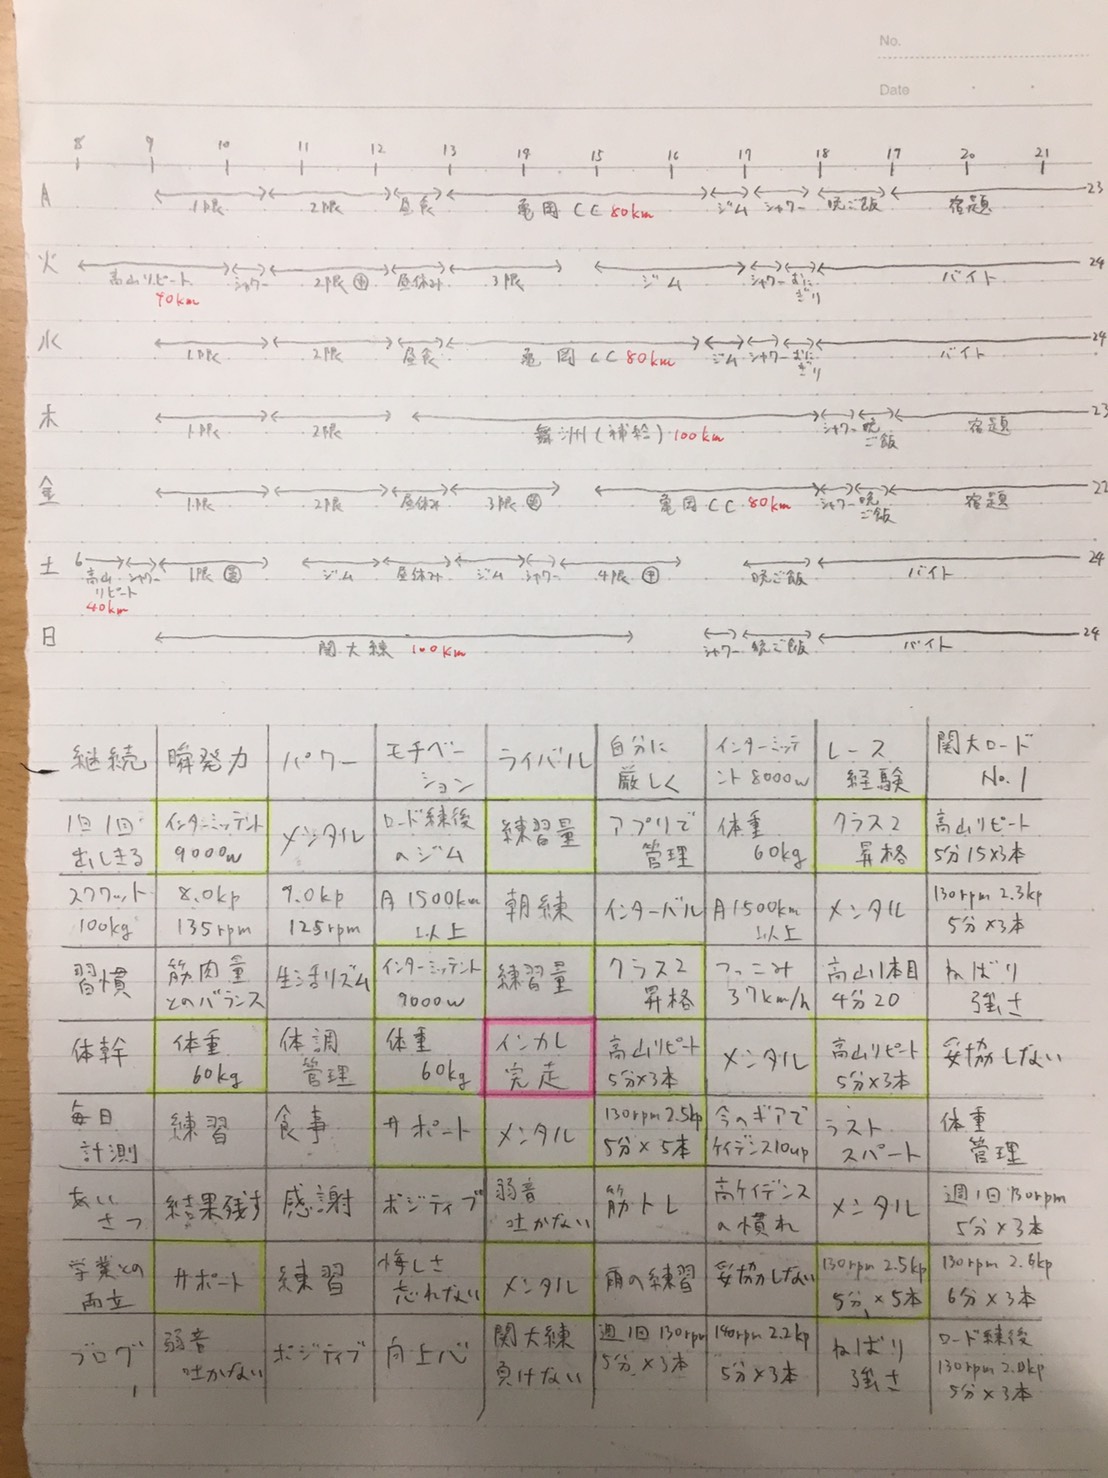 No.
Date
8 9 10 11 12 13 14 15 16 17 18 19 20 21
月 1限 2限 昼食 亀岡CC 80km ジム シャワー 晩ご飯 宿題 23
火 高山リピート 40km シャワー 2限 昼休み 3限 ジム シャワー おにぎり バイト 24
水 1限 2限 昼食 亀岡CC 80km ジム シャワー おにぎり バイト 24
木 1限 2限 舞洲(補給) 100km シャワー 晩ご飯 宿題 23
金 1限 2限 昼休み 3限 亀岡CC 80km シャワー 晩ご飯 宿題 22
土 6 高山リピート 40km シャワー 1限 ジム 昼休み ジム シャワー 4限 晩ご飯 バイト 24
日 関大練 100km シャワー 晩ご飯 バイト 24
継続 瞬発力 パワー モチベーション ライバル 自分に厳しく インターミッテント8000w レース経験 関大ロードNo.1
1回1回出しきる インターミッテント9000w メンタル ロード練後のジム 練習量 アプリで管理 体重60kg クラス2昇格 高山リピート5分15×3本
スクワット100kg 8.0kp 135rpm 9.0kp 125rpm 月1500km以上 朝練 インターバル 月1500km以上 メンタル 130rpm 2.3kp 5分×3本
習慣 筋肉量とのバランス 生活リズム インターミッテント9000w 練習量 クラス2昇格 つっこみ37km/h 高山1本目4分20 ねばり強さ
体幹 体重60kg 体調管理 体重60kg インカレ完走 高山リピート5分×3本 メンタル 高山リピート5分×3本 妥協しない
毎日計測 練習 食事 サポート メンタル 130rpm 2.5kp 5分×5本 今のギアでケイデンス10up ラストスパート 体重管理
あいさつ 結果残す 感謝 ポジティブ 弱音吐かない 筋トレ 高ケイデンスの慣れ メンタル 週1回130rpm 5分×3本
学業との両立 サポート 練習 悔しさ忘れない メンタル 雨の練習 妥協しない 130rpm 2.5kp 5分×5本 130rpm 2.6kp 6分×3本
ブログ 弱音吐かない ポジティブ 向上心 関大練負けない 週1回130rpm 5分×3本 140rpm 2.2kp 5分×3本 ねばり強さ ロード練後130rpm 2.0kp 5分×3本